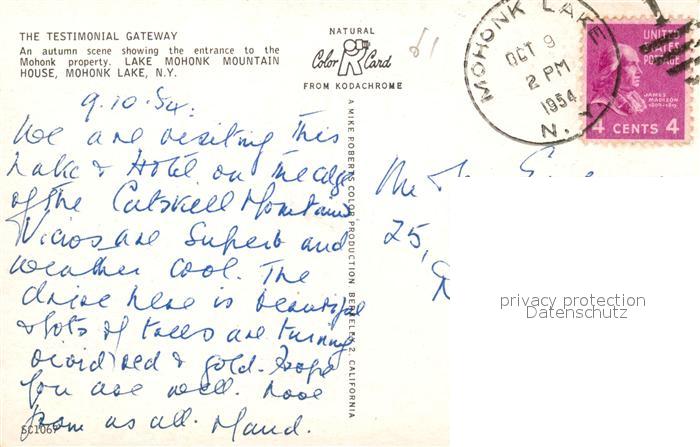 THE TESTIMONIAL GATEWAY
An autumn scene showing the entrance to the
Mohonk property. LAKE MOHONK MOUNTAIN
HOUSE, MOHONK LAKE, N.Y.
NATURAL
Color Card
FROM KODACHROME
61
MOHONK LAKE
OCT 9
2 PM
1954
N.Y.
UNITED
STATES
POSTAGE
JAMES
MADISON
1809-1817
4 CENTS 4
9.10.54.
We are visiting this
Lake & Hotel on the edge
of the Catskill Mountains
Views are Superb and
weather cool. The
drive here is beautiful
& lots of trees are turning
vivid red & gold. Hope
you are well. Love
from us all. Maud.
SC1069
A MIKE ROBERTS COLOR PRODUCTION BERKELEY 2, CALIFORNIA
25,
privacy protection
Datenschutz